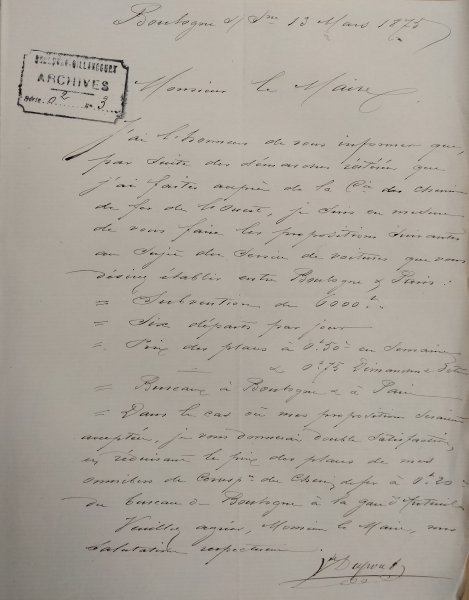 Boulogne s/ Sne 13 Mars 1875
BOULOGNE-BILLANCOURT
ARCHIVES
Série O 2 N° 3
Monsieur le Maire
J'ai l'honneur de vous informer que,
par suite des démarches réitérées que
j'ai faites auprès de la Cie des chemins
de fer de l'Ouest, je suis en mesure
de vous faire les propositions suivantes
au sujet du service de voitures que vous
désirez établir entre Boulogne & Paris :
= Subvention de 6000 f.
= Six départs par jour
= Prix des places à 0f.50c en semaine
& 0f.75 Dimanches & Fêtes
= Bureaux à Boulogne & à Paris
= Dans le cas où mes propositions seraient
acceptées, je vous donnerais double satisfaction,
en réduisant le prix des places de mes
omnibus de Corresp. de Chem. de fer à 0f.20c
du bureau de Boulogne à la gare d'Auteuil
Veuillez agréer, Monsieur le Maire, mes
salutations respectueuses